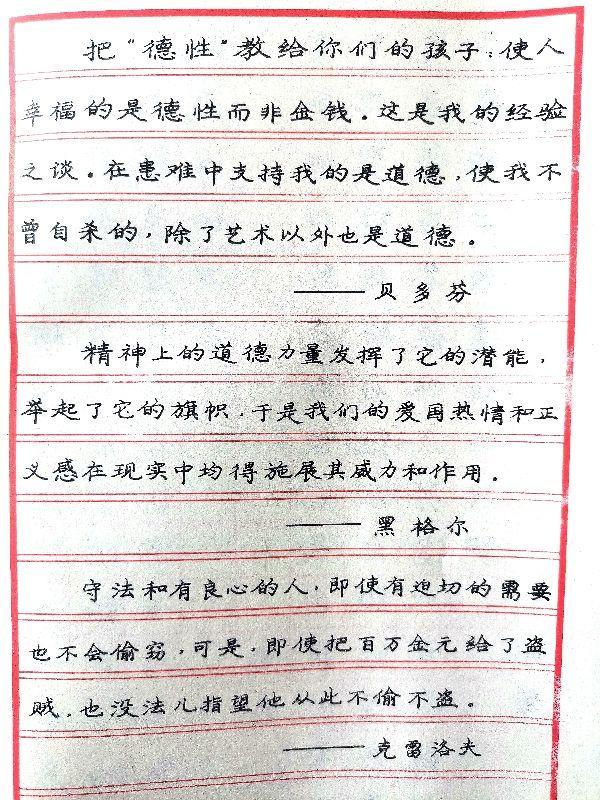 把“德性”教给你们的孩子：使人
幸福的是德性而非金钱。这是我的经验
之谈。在患难中支持我的是道德，使我不
曾自杀的，除了艺术以外也是道德。
——贝多芬
精神上的道德力量发挥了它的潜能，
举起了它的旗帜，于是我们的爱国热情和正
义感在现实中均得施展其威力和作用。
——黑格尔
守法和有良心的人，即使有迫切的需要
也不会偷窃，可是，即使把百万金元给了盗
贼，也没法儿指望他从此不偷不盗。
——克雷洛夫